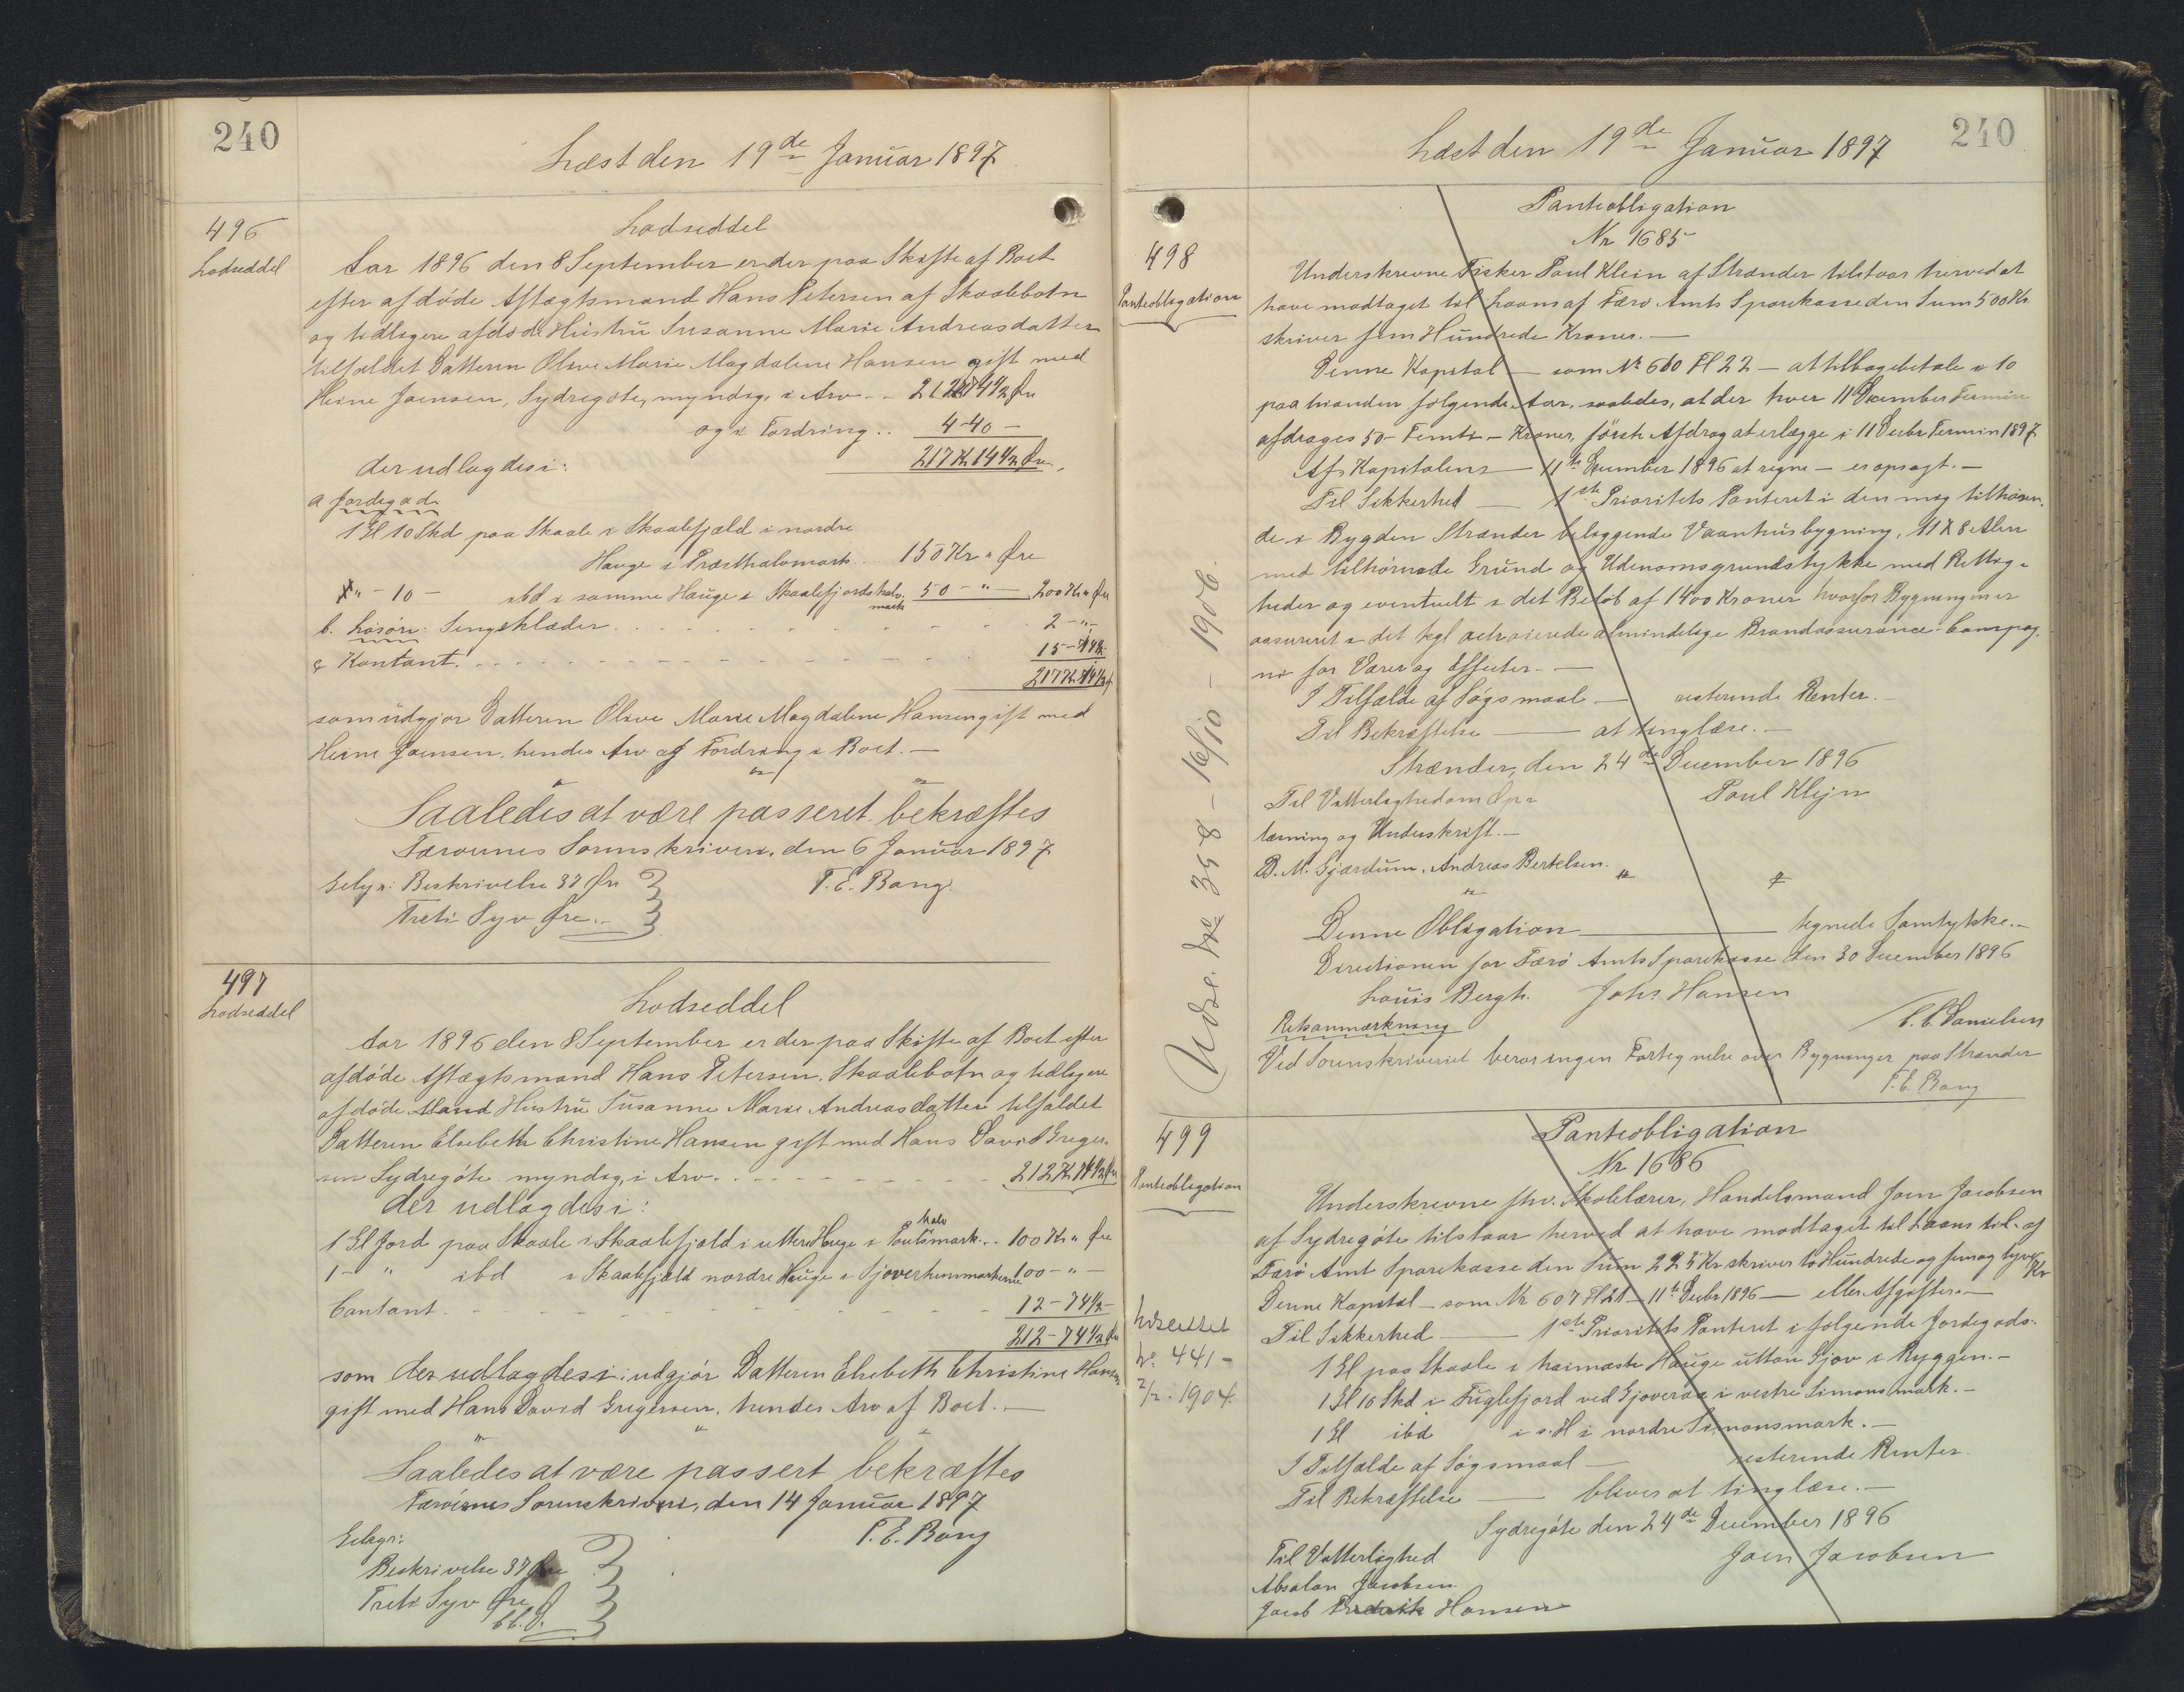 240
Læst den 19de Januar 1897
496
Lodseddel
Lodseddel
Aar 1896 den 8 September er der paa Skifte af Boet
efter afdøde Aftægtsmand Hans Petersen af Skaalebotn
og tidligere afdøde Hustru Susanne Marie Andreasdatter
tilfaldet Datteren Olive Marie Magdalene Hansen gift med
Heine Joensen, Sydregøte, myndig, i Arv - 212 74½ Øre
og i Fordring .. 4-40 -
der udlagdes i: 217 Kr 14½ Øre
a Jordegods
1 Gl 10 Skd paa Skaale i Skaalefjæld i nordre
Hauge i Præsthalvmark .. 150 Kr " Øre
" - 10 - ibd i samme Hauge i Skaalefjords halv-
mark 50 - " - 200 Kr " Øre
b. Løsøre: Sengeklæder . . . 2 - " -
c Kontant . . . 15 - 14½
217 Kr 14½
som udgjør Datteren Olive Marie Magdalene Hansen gift med
Heine Joensen, hendes Arv og Fordring i Boet. —
Saaledes at være passeret bekræftes
Færøernes Sorenskriveri, den 6 Januar 1897
Gebyr: Beskrivelse 37 Øre T. E. Bang.
Treti Syv Øre. -
497
Lodseddel
Lodseddel
Aar 1896 den 8 September er der paa Skifte af Boet efter
afdøde Aftægtsmand Hans Petersen, Skaalebotn og tidligere
afdøde Mand Hustru Susanne Marie Andreasdatter tilfaldet
Datteren Elsebeth Christine Hansen gift med Hans David Greger-
sen Sydregøte myndig, i Arv . . . 212 Kr 74½ Øre
der udlagdes i:
1 Gl Jord paa Skaale i Skaalefjæld i uttere Hauge i Poulshalvmark .. 100 Kr " Øre
1 - " ibd i Skaalefjæld nordre Hauge i Gjoverhusmarkerne 100 - " -
Contant . . . 12 - 74½ -
212 - 74½ Øre
som der udlagdes i: udgjør Datteren Elsebeth Christine Hansen
gift med Hans David Gregersen, hendes Arv af Boet. —
Saaledes at være passert bekræftes
Færøernes Sorenskriveri, den 14 Januar 1897
Gebyr: T. E. Bang
Beskrivelse 37 Øre
Treti Syv Øre
240
Læst den 19de Januar 1897
498
Panteobligation
Panteobligation
Nr 1685
Underskrevne Fisker Poul Klein af Strænder tilstaar herved at
have modtaget til Laans af Færø Amts Sparekasse den Sum 500 Kr
skriver fem Hundrede Kroner. —
Denne Kapital — som Nr 660 Fl 22 — at tilbagebetale i 10
paa hinanden følgende Aar, saaledes, at der hver 11 December Termin
afdrages 50 - Femti - Kroner, første Afdrag at erlægge i 11 Decbr Termin 1897
Af Kapitalens — 11te December 1896 at regne — er opsagt. —
Til Sikkerhed — 1ste Prioritets Panteret i den mig tilhøren-
de i Bygden Strænder beliggende Vaanhusbygning, 11 X 8 Alen
med tilhørende Grund og Udenomsgrundstykke med Rettig-
heder og eventuelt i det Beløb af 1400 Kroner hvorfor Bygningen er
assureret i det kgl octroierede almindelige Brandassurance-Compag-
ni for Varer og Effecter. —
I Tilfælde af Søgsmaal — resterende Renter. —
Til Bekræftelse — at tinglæse. —
Strænder, den 24de December 1896
Til Vitterlighed om Op- Poul Klejn
læsning og Underskrift. —
D. M. Gjærdum. Andreas Berthelsen.
Denne Obligation — tegnede Samtykke. -
Directionen for Færø Amts Sparekasse den 30 December 1896
Louis Bergh. Johs Hansen
C. C. Danielsen
Retsanmærkning
Ved Sorenskriveriet beror ingen Fortegnelse over Bygninger paa Strænder
T. E. Bang
Udsl. No 358 - 16/10 - 1906.
499
Panteobligation
Panteobligation
Nr 1686
Underskrevne fhv. Skolelærer, Handelsmand Joen Jacobsen
af Sydregøte tilstaar herved at have modtaget til Laans til af
Færø Amt Sparekasse den Sum 225 Kr skriver to Hundrede og fem og tyve Kr
Denne Kapital — som Nr 607 Fl 21 — 11te Decbr 1896 — eller Afgifter. —
Til Sikkerhed — 1ste Prioritets Panteret i følgende Jordegods.
1 Gl paa Skaale i heimaste Hauge uttan Gjov i Ryggen. -
1 Gl 10 Skd i Fuglefjord ved Gjoveraa i vestre Simonsmark. -
1 Gl ibd i s. H i nordre Simonsmark. —
I Tilfælde af Søgsmaal — resterende Renter.
Til Bekræftelse — bliver at tinglæse. —
Sydregøte den 24de December 1896
Til Vitterlighed Joen Jacobsen
Absalon Jacobsen
Jacob Fredrik Hansen
Udslettet
No. 441 -
2/2 - 1904.